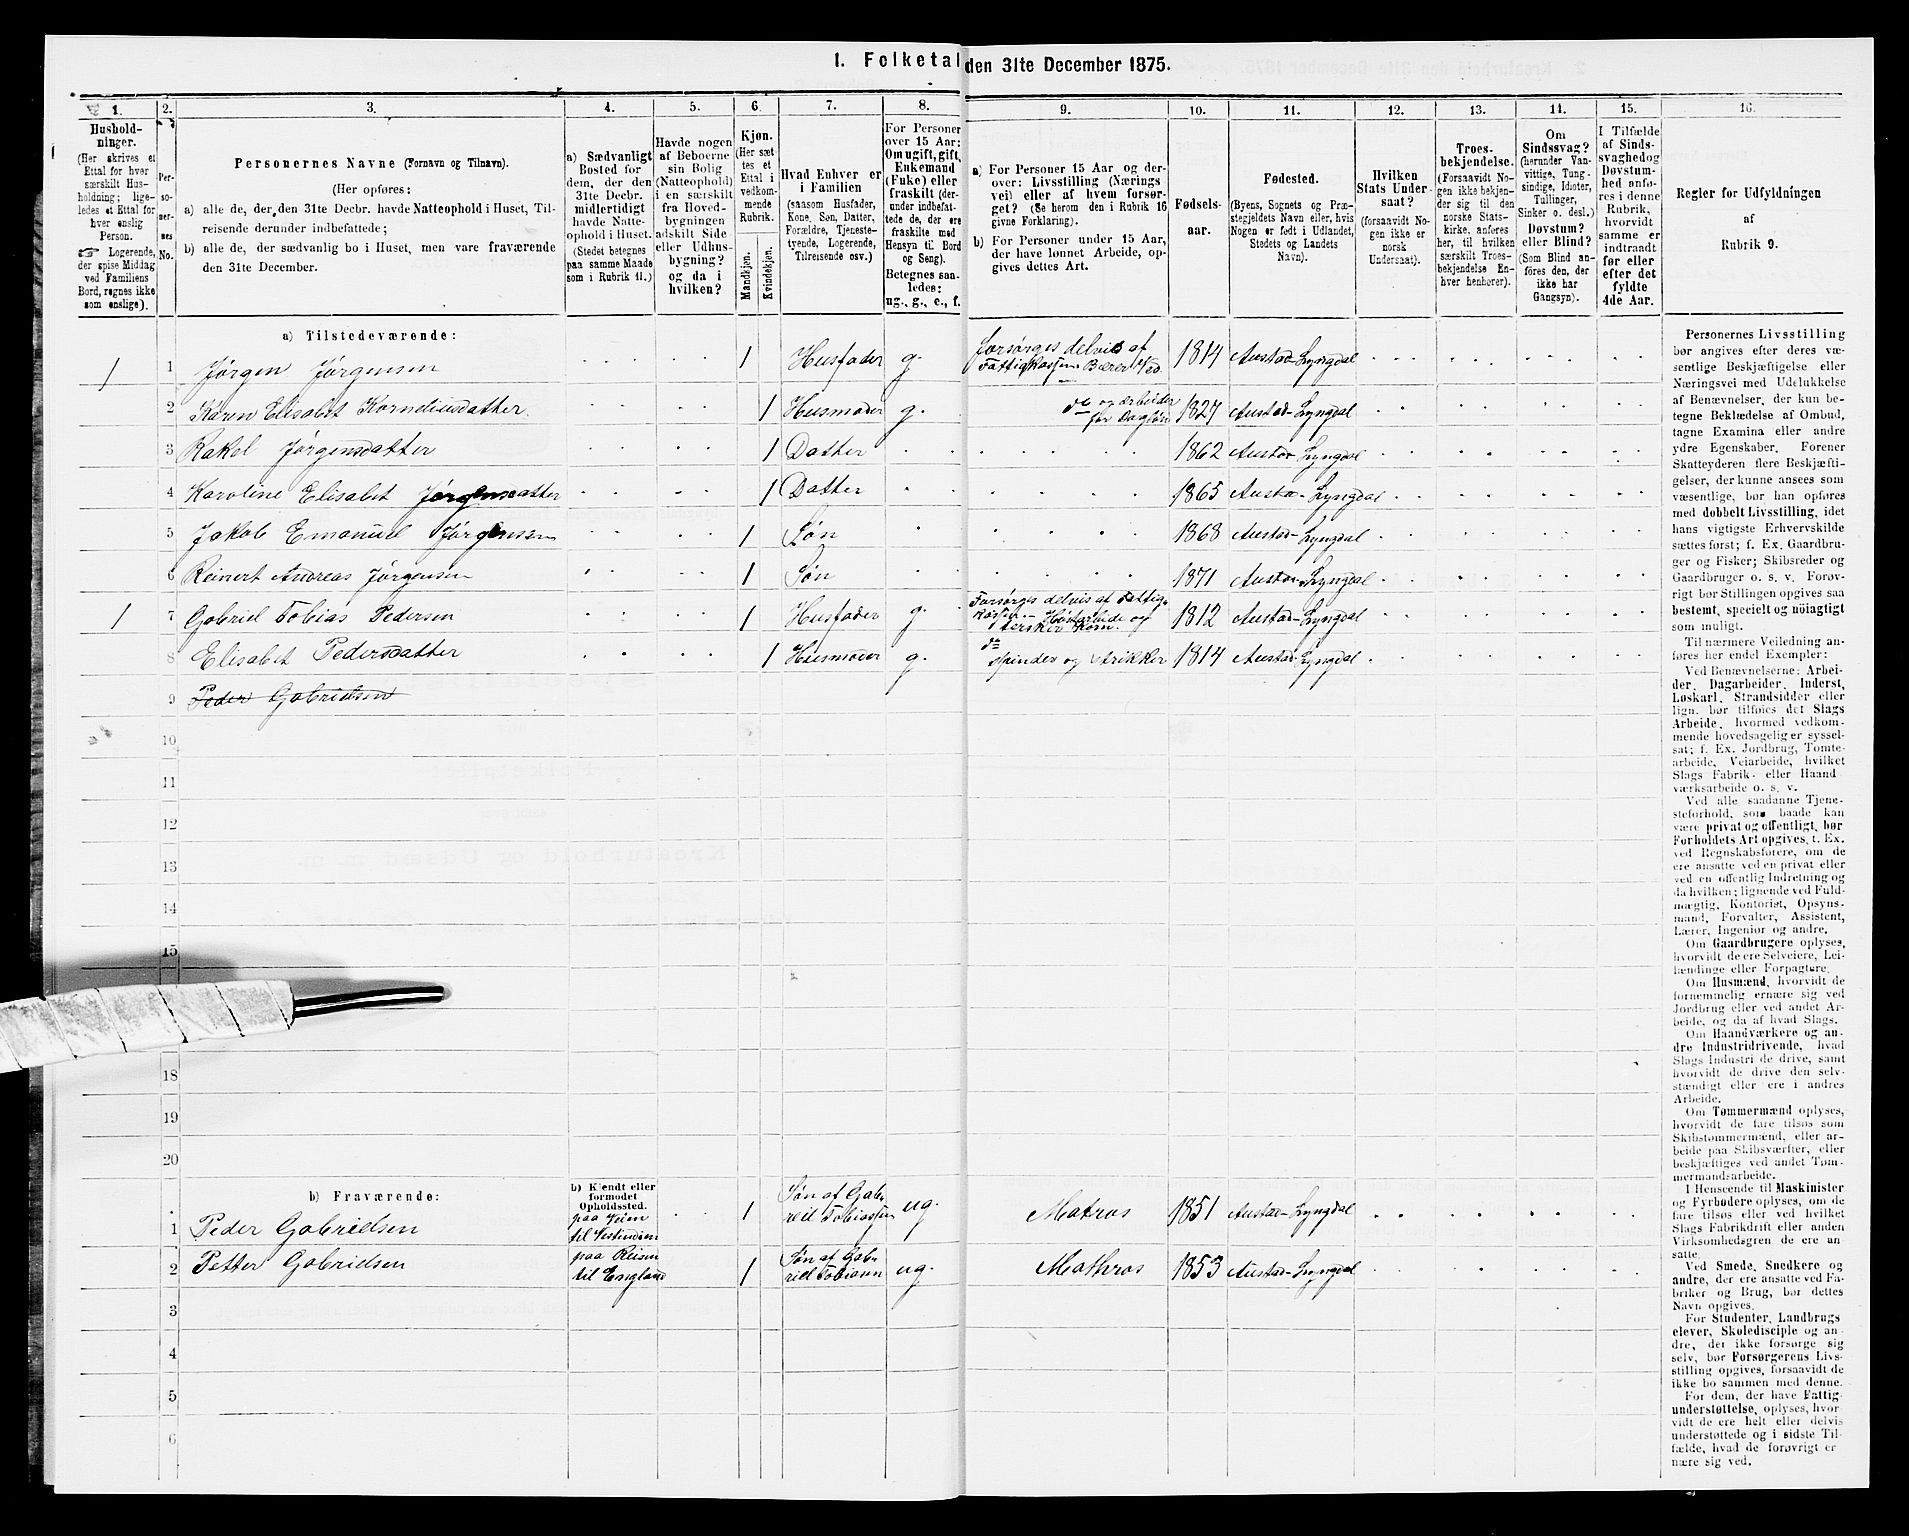 1. Folketal den 31te December 1875.
1. 2. 3. 4. 5. 6. 7. 8. 9. 10. 11. 12. 13. 14. 15. 16.
Hushold-
ninger.
(Her skrives et
Ettal for hver
særskilt Hus-
holdning; lige-
ledes et Ettal for
hver enslig
Person.
☞ Logerende,
der spise Middag
ved Familiens
Bord, regnes ikke
som enslige).
Per-
so-
ner-
nes
No.
Personernes Navne (Fornavn og Tilnavn).
(Her opføres:
a) alle de, der den 31te Decbr. havde Natteophold i Huset, Til-
reisende derunder indbefattede;
b) alle de, der sædvanlig bo i Huset, men vare fraværende
den 31te December.
a) Sædvanligt
Bosted for
dem, der den
31te Decbr.
midlertidigt
havde Natte-
ophold i Huset.
(Stedet betegnes
paa samme Maade
som i Rubrik 11.)
Havde nogen
af Beboerne
sin Bolig
(Natteophold)
i en særskilt
fra Hoved-
bygningen
adskilt Side
eller Udhus-
bygning?
og da i
hvilken?
Kjøn.
(Her sæt
tes et
Ettal i
vedkom-
mende
Rubrik.
Mandkjøn.
Kvindekjøn.
Hvad Enhver er
i Familien
(saasom Husfader,
Kone, Søn, Datter,
Forældre, Tjeneste-
tyende, Logerende,
Tilreisende osv.)
For Personer
over 15 Aar:
Om ugift, gift,
Enkemand
(Fuke) eller
fraskilt (der-
under indbefat-
tede de, der ere
fraskilte med
Hensyn til Bord
og Seng).
Betegnes saa-
ledes:
ug., g., e., f.
a) For Personer 15 Aar og der-
over: Livsstilling (Nærings
vei) eller af hvem forsør-
get? (Se herom den i Rubrik 16
givne Forklaring).
b) For Personer under 15 Aar,
der have lønnet Arbeide, op-
gives dettes Art.
Fødsels-
aar.
Fødested.
(Byens, Sognets og Præ-
stegjeldets Navn eller, hvis
Nogen er født i Udlandet,
Stedets og Landets
Navn).
Hvilken
Stats Under-
saat?
(forsaavidt No-
gen ikke er
norsk
Undersaat).
Troes-
bekjendelse.
(Forsaavidt No-
gen ikke bekjen-
der sig til den
norske Stats-
kirke, anføres
her, til hvilken
særskilt Troes-
bekjendelse En-
hver henhører).
Om
Sindssvag?
(herunder Van-
vittige, Tung-
sindige, Idioter,
Tullinger,
Sinker o. desl.)
Døvstum?
eller Blind?
(Som Blind an-
føres den, der
ikke har
Gangsyn).
I Tilfælde
af Sinds-
svaghed og
Døvstum-
hed anfø-
res i denne
Rubrik,
hvorvidt
samme er
indtraadt
før eller
efter det
fyldte
4de Aar.
Regler for Udfyldningen
af
Rubrik 9.
a) Tilstedeværende:
1 1 Jørgen Jørgensen 1 Husfader g. forsørges delvis af Fattigkassen. Bærer Ved 1814 Austad-Lyngdal
2 Karen Elisabet Korneliusdatter 1 Husmoder g. do og arbeider for Dagløn 1827 Austad-Lyngdal
3 Rakel Jørgensdatter 1 Datter 1862 Austad-Lyngdal
4 Karoline Elisabet Jørgensdatter 1 Datter 1865 Austad-Lyngdal
5 Jakob Emanuel Jørgensen 1 Søn 1868 Austad-Lyngdal
6 Reinert Andreas Jørgensen 1 Søn 1871 Austad-Lyngdal
1 7 Gabriel Tobias Pedersen 1 Husfader g. Forsørges delvis af Fattigkassen. - Høstarbeide og tersker Korn. 1812 Austad-Lyngdal
8 Elisabet Pedersdatter 1 Husmoder g. do spinder og strikker 1814 Austad-Lyngdal
9 Peder Gabrielsen
10
11
12
13
14
15
18
19
20
b) Fraværende:
b) Kjendt eller
formodet
Opholdssted.
1 Peder Gabrielsen paa Veien til Vestindien 1 Søn af Gabriel Tobiassen ug. Matros 1851 Austad-Lyngdal
2 Petter Gabrielsen paa Reisen til England 1 Søn af Gabriel Tobiassen ug. Mathros 1853 Austad-Lyngdal
3
4
5
6
Personernes Livsstilling
bør angives efter deres væ-
sentlige Beskjæftigelse eller
Næringsvei med Udelukkelse
af Benævnelser, der kun be-
tegne Beklædelse af Ombud,
tagne Examina eller andre
ydre Egenskaber. Forener
Skatteyderen flere Beskjæfti-
gelser, der kunne ansees som
væsentlige, bør han opføres
med dobbelt Livsstilling, idet
hans vigtigste Erhvervskilde
sættes først; f. Ex. Gaardbru-
ger og Fisker; Skibsreder og
Gaardbruger o. s. v. Forøv-
rigt bør Stillingen opgives saa
bestemt, specielt og nöiagtigt
som muligt.
Til nærmere Veiledning an-
føres her endel Exempler:
Ved Benævnelserne: Arbei-
der, Dagarbeider, Inderst,
Løskarl, Strandsidder eller
lign. bør tilføies det Slags
Arbeide, hvormed vedkom-
mende hovedsagelig er syssel-
sat; f. Ex. Jordbrug, Tomte-
arbeide, Veiarbeide, hvilket
Slags Fabrik- eller Haand
værksarbeide o. s. v.
Ved alle saadanne Tjene-
steforhold, som baade kan
være privat og offentligt, bør
Forholdets Art opgives, t. Ex.
ved Regnskabsførere, om de
ere ansatte ved en privat eller
ved en offentlig Indretning og
da hvilken; lignende ved Fuld-
mægtig, Kontorist, Opsyns-
mand, Forvalter, Assistent,
Lærer, Ingeniør og andre.
Om Gaardbrugere oplyses,
hvorvidt de ere Selveiere, Lei-
lændinge eller Forpagtere.
Om Husmænd, hvorvidt de
fornemmelig ernære sig ved
Jordbrug eller ved andet Ar-
beide, og da af hvad Slags.
Om Haandværkere og an-
dre Industridrivende, hvad
Slags Industri de drive, samt
hvorvidt de drive den selv-
stændigt eller ere i andres
Arbeide.
Om Tømmermænd oplyses,
hvorvidt de fare tilsøs som
Skibstømmermænd, eller ar-
beide paa Skibsværfter, eller
beskjæftiges ved andet Tøm-
mermandsarbeide.
I Henseende til Maskinister
og Fyrbødere oplyses, om de
fare tilsøs eller ved hvilket
Slags Fabrikdrift eller anden
Virksomhedsgren de ere an-
satte.
Ved Smede, Snedkere og
andre, der ere ansatte ved Fa-
briker og Brug, bør dettes
Navn opgives.
For Studenter, Landbrugs
elever, Skoledisciple og an-
dre, der ikke forsørge sig
selv, bør Forsørgerens Livs-
stilling opgives, forsaavidt de
ikke bo sammen med denne.
For dem, der have Fattig
understøttelse, oplyses, hvor-
vidt de ere helt eller delvis
understøttede og i sidste Til-
fælde, hvad de forøvrigt er
nære sig ved.